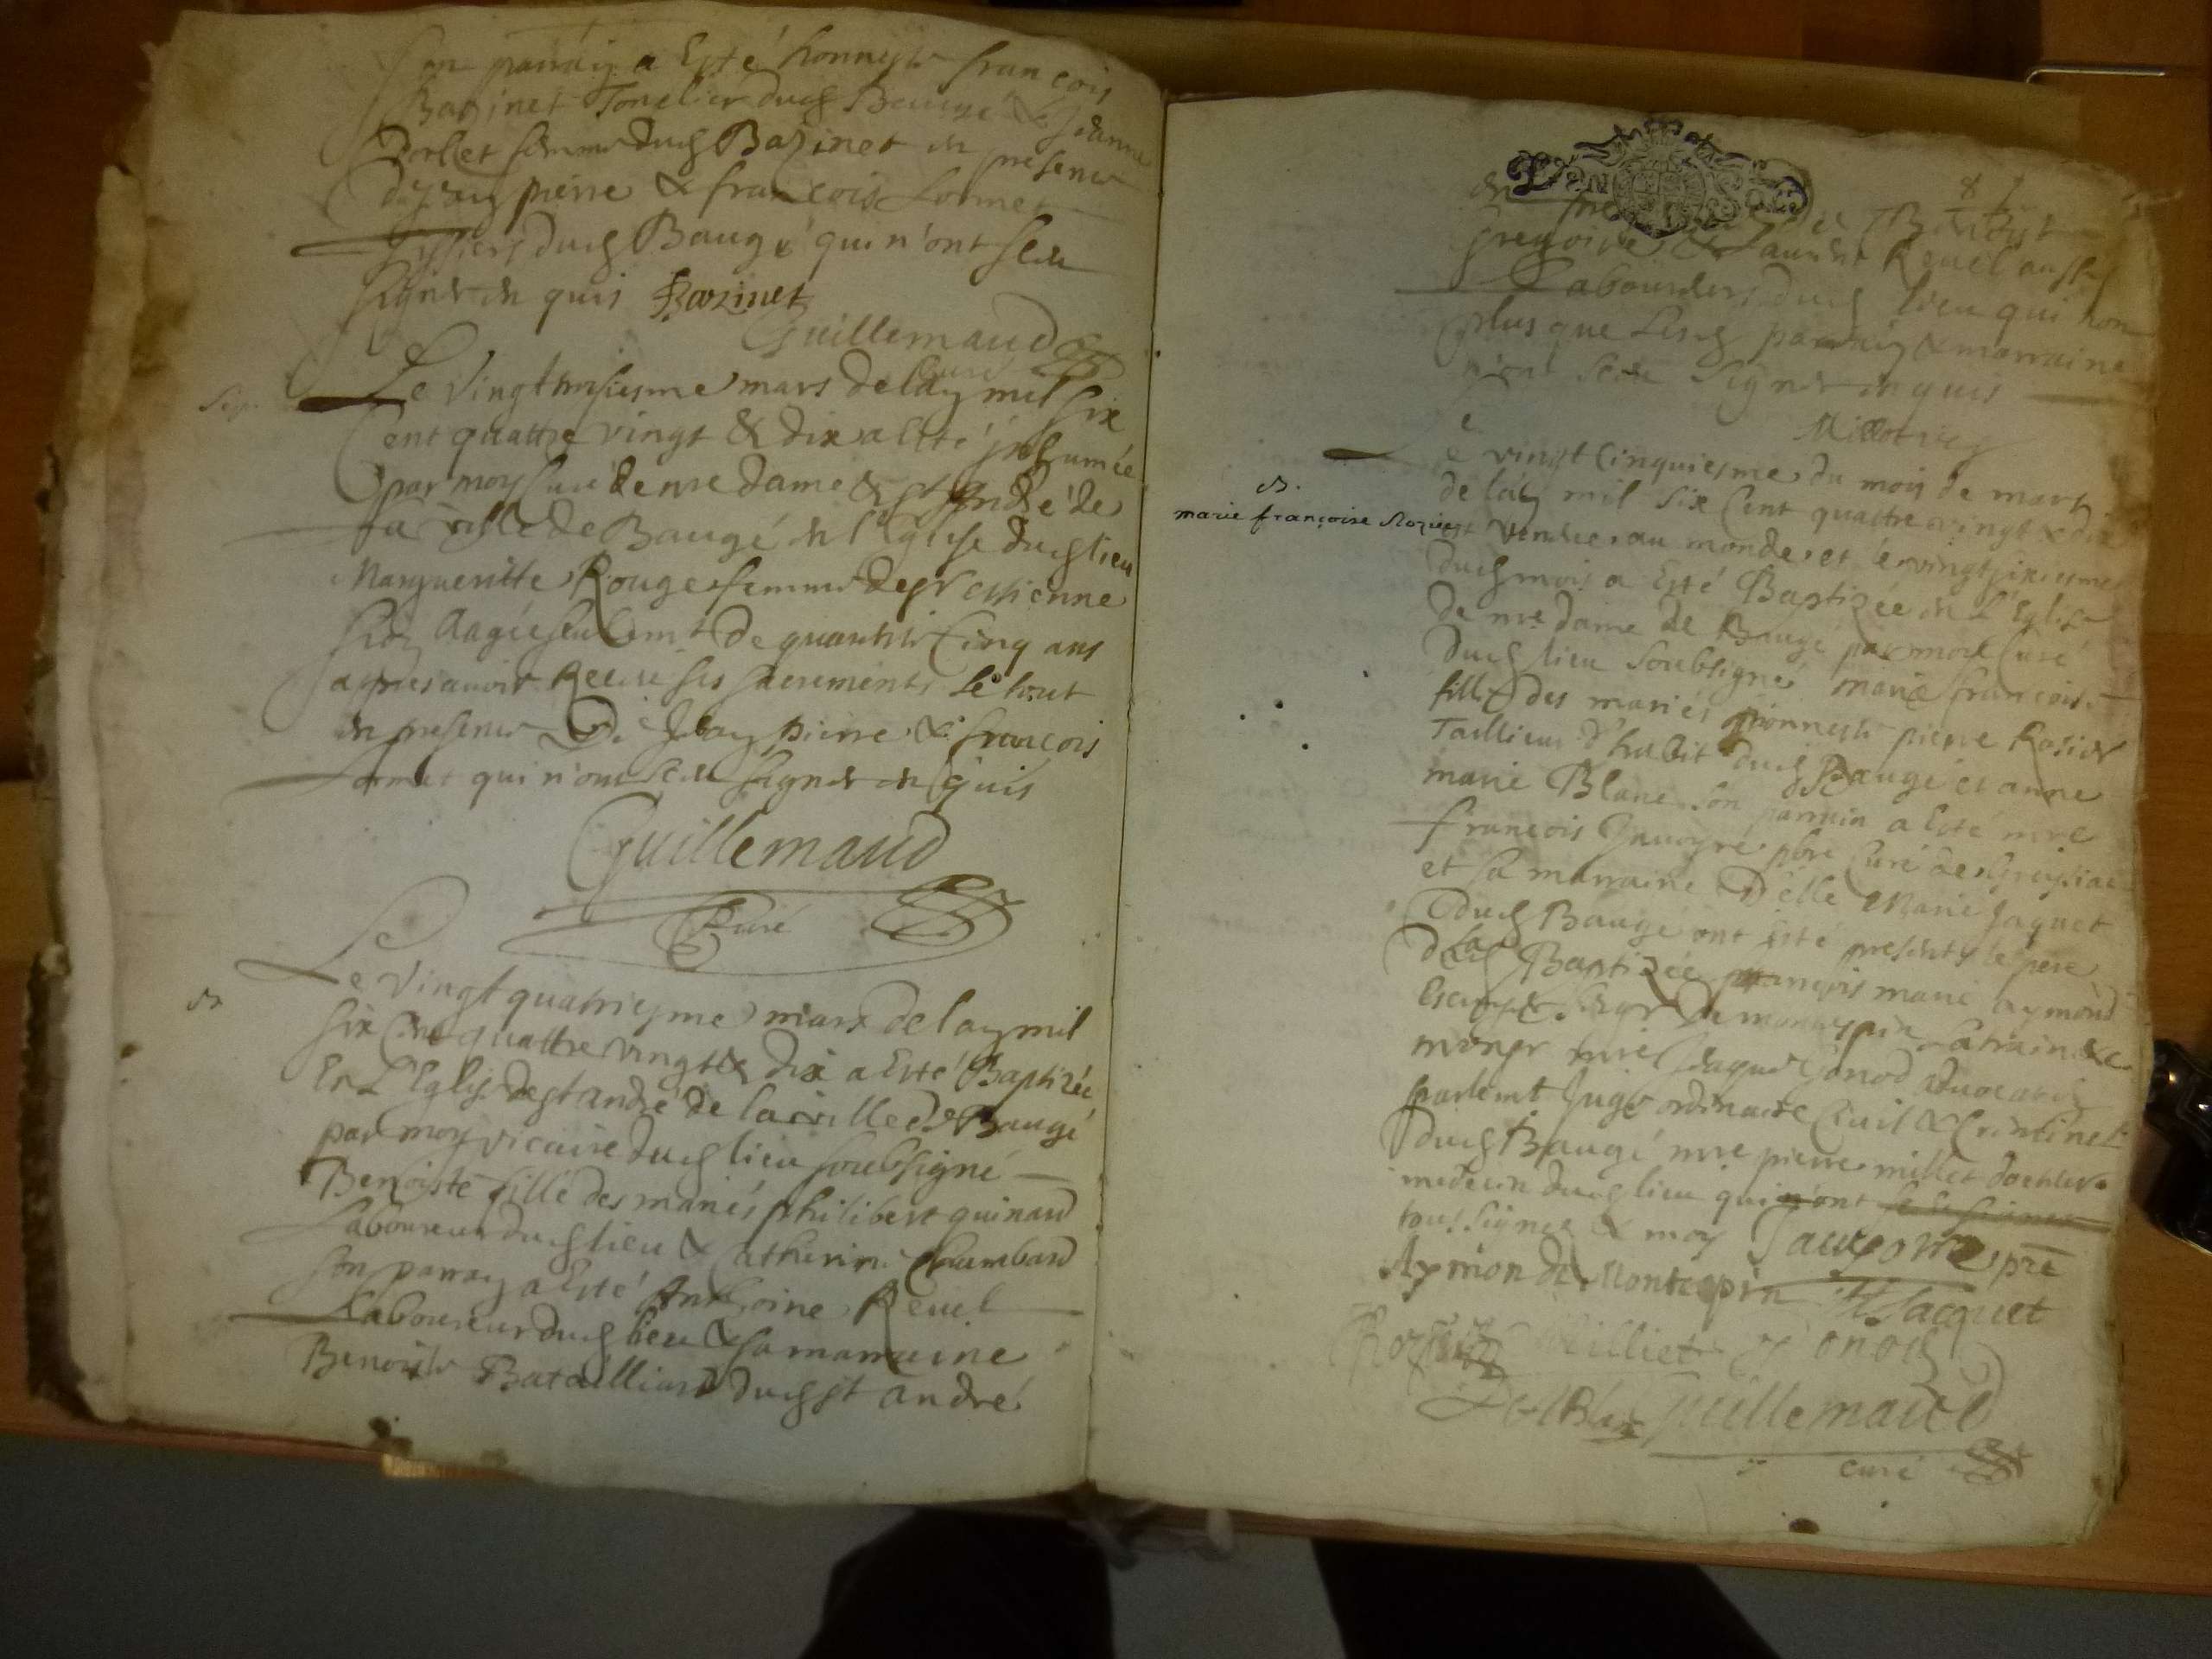 son parrain a Esté honneste françois
Bazinet Tonelier dud Baugé & Jeanne
femme dud Bazinet en presence
pierre & françois Lormet
dud Baugé qui n'ont sceu
signer en quis Bazinet
Guillemaud
curé
Sep.
Le vingt troisiesme mars de lan mil six
Cent quattre vingt & dix a esté inhumée
par moy Curé de nre dame & st André de
la ville de Baugé en l'Eglise dud lieu
Margueritte Rouge femme de Sr estienne
aagée seulemt de quarente Cinq ans
apres avoir Receu ses sacrements le tout
en presence De Jean pierre & françois
Lormet qui n'ont sceu signer en quis
Guillemaud
Curé
B.
Le vingt quatriesme mars de lan mil
six Cent quattre vingt & dix a Esté Baptizée
En L'Eglise de st andré de la ville de Baugé
par moy vicaire dud lieu soubsigné
Benoiste fille des mariés philibert guinard
Laboureur dud lieu & Catherine Chambard
son parrain a Esté Anthoine Revel
Laboureur dud lieu & sa marraine
Benoiste Batailliard dud st andré
8
en pre
gregoire & Laurent Revel aussy
Laboureurs dud lieu qui non
plus que lesd parrain & marraine
n'ont sceu signer en quis
Millot vic
B.
marie françoise Rozier
Le vingt Cinquiesme du mois de mars
de lan mil six Cent quattre vingt & dix
est venue au monde et le vingt sixiesme
dud mois a Esté Baptizée en L'Eglise
De nre dame de Baugé par moy Curé
dud lieu soubsigné marie françoise
fille des mariés honneste pierre Rosier
Tailleur d'habit dud Baugé et anne
marie Blanc son parrain a Esté mre
françois pbre Curé de
et sa marraine Delle Marie Jaquet
dud Baugé ont Esté presents le pere
de la d Baptizée françois marie aymond
Escuyer Sieur de montespin
mre Jaque Gonod advocat en
parlemt Juge ordinaire Civil & Criminel
dud Baugé mre pierre milliet docteur
medecin dud lieu qui n'ont sceu signer
tous signes & moy pre
Aymon de Montespin M. Jacquet
Rozier Milliet Gonod
Guillemaud
curé